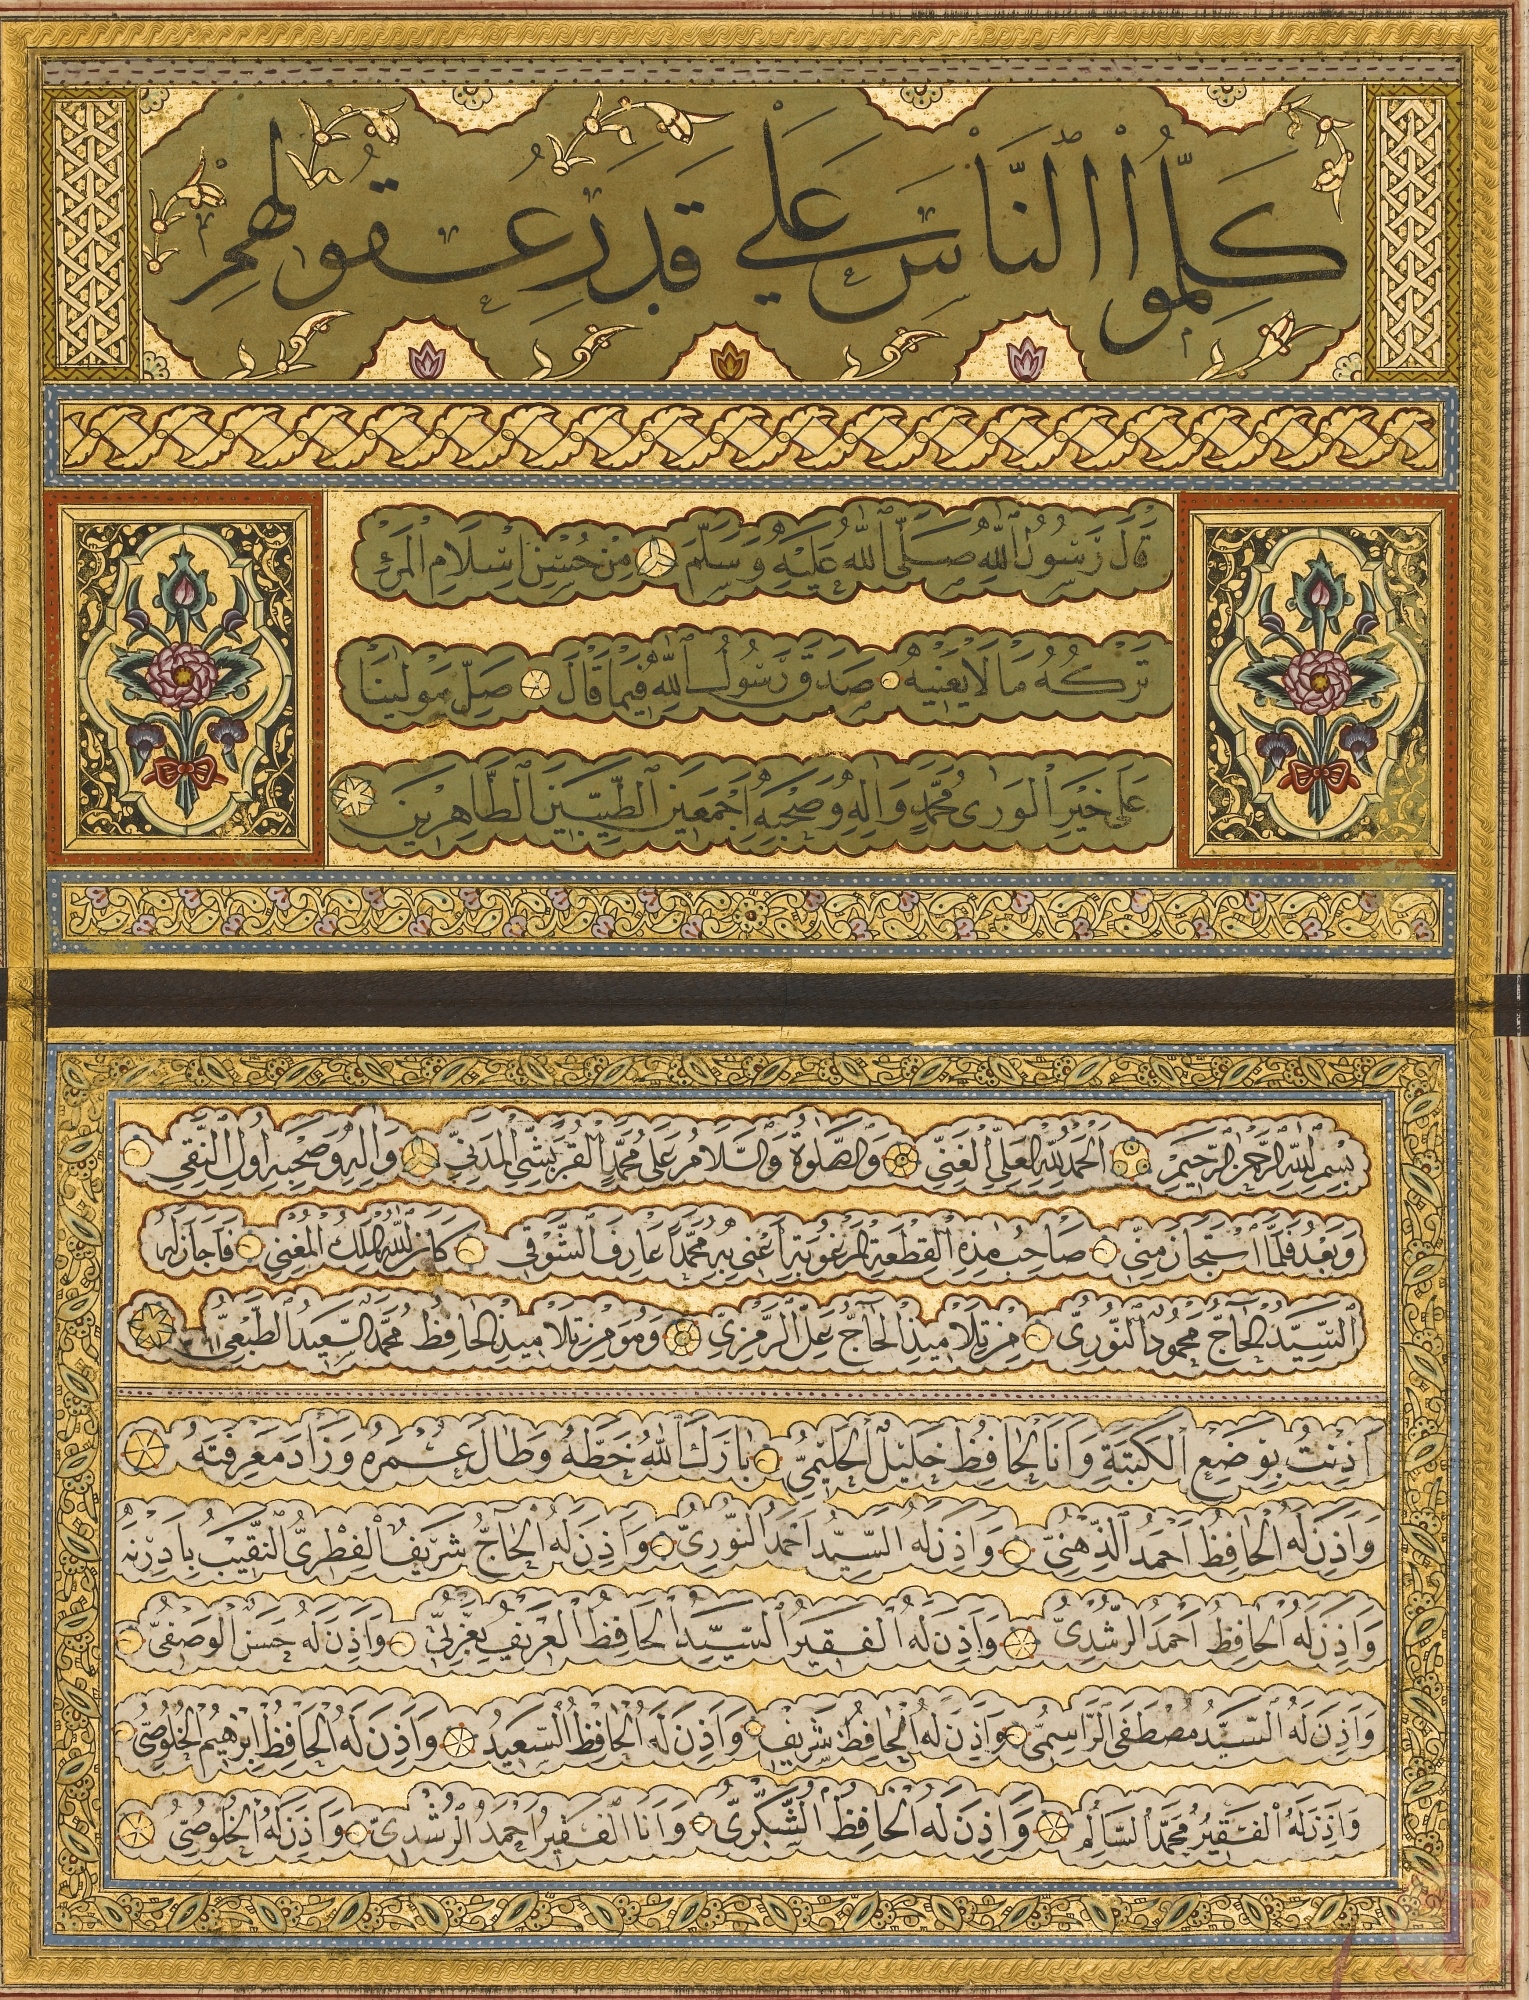 كَلِّمُوا النَّاسَ عَلَى قَدَرِ عُقُولِهِمْ
قَالَ رَسُولُ اللّٰهِ صَلَّى اللّٰهُ عَلَيْهِ وَسَلَّمَ مِنْ حُسْنِ اِسْلَامِ الْمَرْءِ
تَرْكُهُ مَا لَا يَعْنِيهِ صَدَقَ رَسُولُ اللّٰهِ فِيمَا قَالَ صَلِّ مَوْلَينَا
عَلَى خَيْرِ الْوَرَى مُحَمَّدٍ وَاٰلِهِ وَصَحْبِهِ اَجْمَعِينَ الطَّيِّبِينَ الطَّاهِرِينَ
بِسْمِ اللّٰهِ الرَّحْمٰنِ الرَّحِيمِ اَلْحَمْدُ لِلّٰهِ الْعَلِيِّ الْغَنِيِّ وَالصَّلٰوةُ وَالسَّلَامُ عَلَى مُحَمَّدٍ الْقُرَيْشِيِّ الْمَدَنِيِّ وَاٰلِهِ وَصَحْبِهِ اُولِى التَّقِي
وَبَعْدُ فَلَمَّا اسْتَجَازَ مِنِّي صَاحِبُ هٰذِهِ الْقِطْعَةِ الْمَرْغُوبَةِ اَعْنِي بِهِ مُحَمَّدْ عَارِفَ الشَّوْقِي كَانَ لَهُ اللّٰهُ الْمَلِكُ الْمُغْنِي فَاَجَازَ لَهُ
اَلسَّيِّدُ الْحَاجّ مَحْمُودُ النُّورِيُّ مِنْ تَلَامِيذِ الْحَاجّ عَلِي الرَّمْزِيّ وَهُوَ مِنْ تَلَامِيذِ الْحَافِظْ مُحَمَّدِ السَّعِيدِ
اَذِنْتُ بِوَضْعِ الْكَتَبَةِ وَاَنَا الْحَافِظُ خَلِيلُ الْحَلِيمِيُّ بَارَكَ اللّٰهُ خَطَّهُ وَطَالَ عُمْرُهُ وَزَادَ مَعْرِفَتَهُ
وَاَذِنَ لَهُ الْحَافِظُ اَحْمَدُ الذِّهْنِيُّ وَاَذِنَ لَهُ السَّيِّدُ اَحْمَدُ النُّورِيُّ وَاَذِنَ لَهُ الْحَاجُّ شَرِيفُ الْفِطْرِيُّ النَّقِيبُ بِاَدِرْنَه
وَاَذِنَ لَهُ الْحَافِظُ اَحْمَدُ الرُّشْدِيُّ وَاَذِنَ لَهُ الْفَقِيرُ السَّيِّدُ الْحَافِظُ وَاَذِنَ لَهُ حَسَنُ الْوَصْفِيُّ
وَاَذِنَ لَهُ السَّيِّدُ مُصْطَفَى الرَّاسِمِيُّ وَاَذِنَ لَهُ الْحَافِظُ شَرِيفُ وَاَذِنَ لَهُ الْحَافِظُ السَّعِيدُ وَاَذِنَ لَهُ الْحَافِظُ اِبْرٰهِيمُ الْخُلُوصِيُّ
وَاَذِنَ لَهُ الْفَقِيرُ مُحَمَّدُ السَّالِمُ وَاَذِنَ لَهُ الْحَافِظُ الشُّكْرِيُّ وَاَنَا الْفَقِيرُ اَحْمَدُ الرُّشْدِيُّ وَاَذِنَ لَهُ الْخُلُوصِيُّ